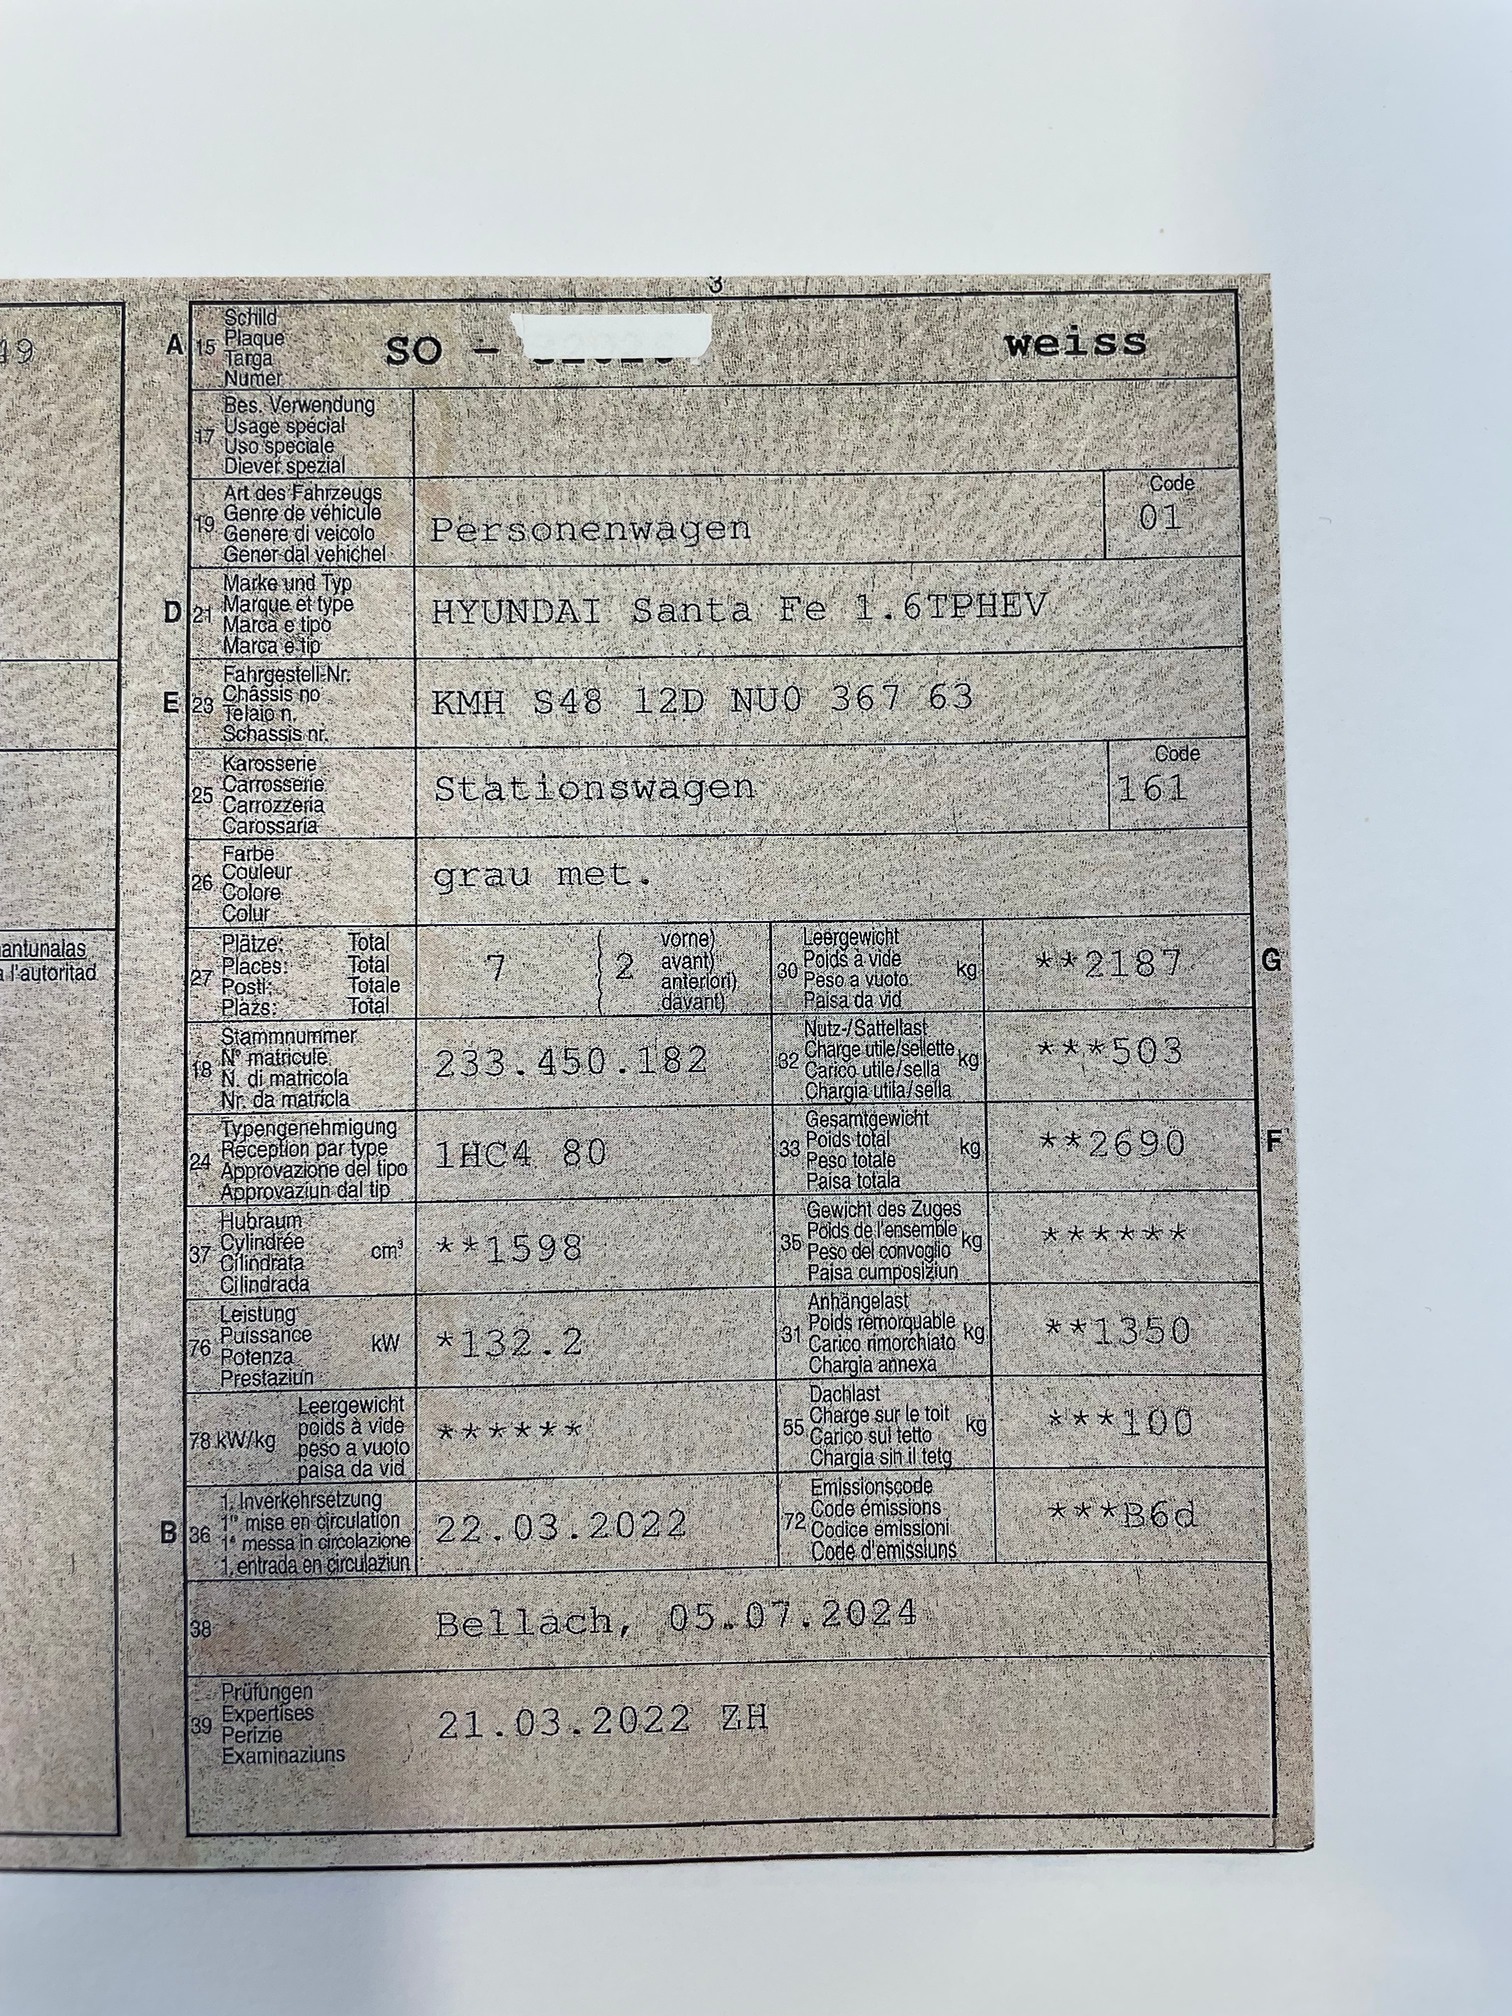 3
49
A 15 Schild
Plaque
Targa
Numer
SO - weiss
17 Bes. Verwendung
Usage spécial
Uso speciale
Diever spezial
19 Art des Fahrzeugs
Genre de véhicule
Genere di veicolo
Gener dal vehichel
Personenwagen
Code
01
D 21 Marke und Typ
Marque et type
Marca e tipo
Marca e tip
HYUNDAI Santa Fe 1.6TPHEV
E 23 Fahrgestell-Nr.
Châssis no
Telaio n.
Schassis nr.
KMH S48 12D NU0 367 63
25 Karosserie
Carrosserie
Carrozzeria
Carossaria
Stationswagen
Code
161
26 Farbe
Couleur
Colore
Colur
grau met.
27 Plätze: Total
Places: Total
Posti: Totale
Plazs: Total
7 ( 2 vorne)
avant)
anteriori)
davant)
30 Leergewicht
Poids à vide
Peso a vuoto
Paisa da vid
kg **2187 G
antunalas
a l'autoritad
18 Stammnummer
N° matricule
N. di matricola
Nr. da matricla
233.450.182
32 Nutz-/Sattellast
Charge utile/sellette
Carico utile/sella
Chargia utila/sella
kg ***503
24 Typengenehmigung
Réception par type
Approvazione del tipo
Approvaziun dal tip
1HC4 80
33 Gesamtgewicht
Poids total
Peso totale
Paisa totala
kg **2690 F
37 Hubraum
Cylindrée
Cilindrata
Cilindrada
cm³ **1598
35 Gewicht des Zuges
Poids de l'ensemble
Peso del convoglio
Paisa cumposiziun
kg ******
76 Leistung
Puissance
Potenza
Prestaziun
kW *132.2
31 Anhängelast
Poids remorquable
Carico rimorchiato
Chargia annexa
kg **1350
78 kW/kg Leergewicht
poids à vide
peso a vuoto
paisa da vid
******
55 Dachlast
Charge sur le toit
Carico sul tetto
Chargia sin il tetg
kg ***100
B 36 1. Inverkehrsetzung
1re mise en circulation
1a messa in circolazione
1. entrada en circulaziun
22.03.2022
72 Emissionscode
Code émissions
Codice emissioni
Code d'emissiuns
***B6d
38 Bellach, 05.07.2024
39 Prüfungen
Expertises
Perizie
Examinaziuns
21.03.2022 ZH